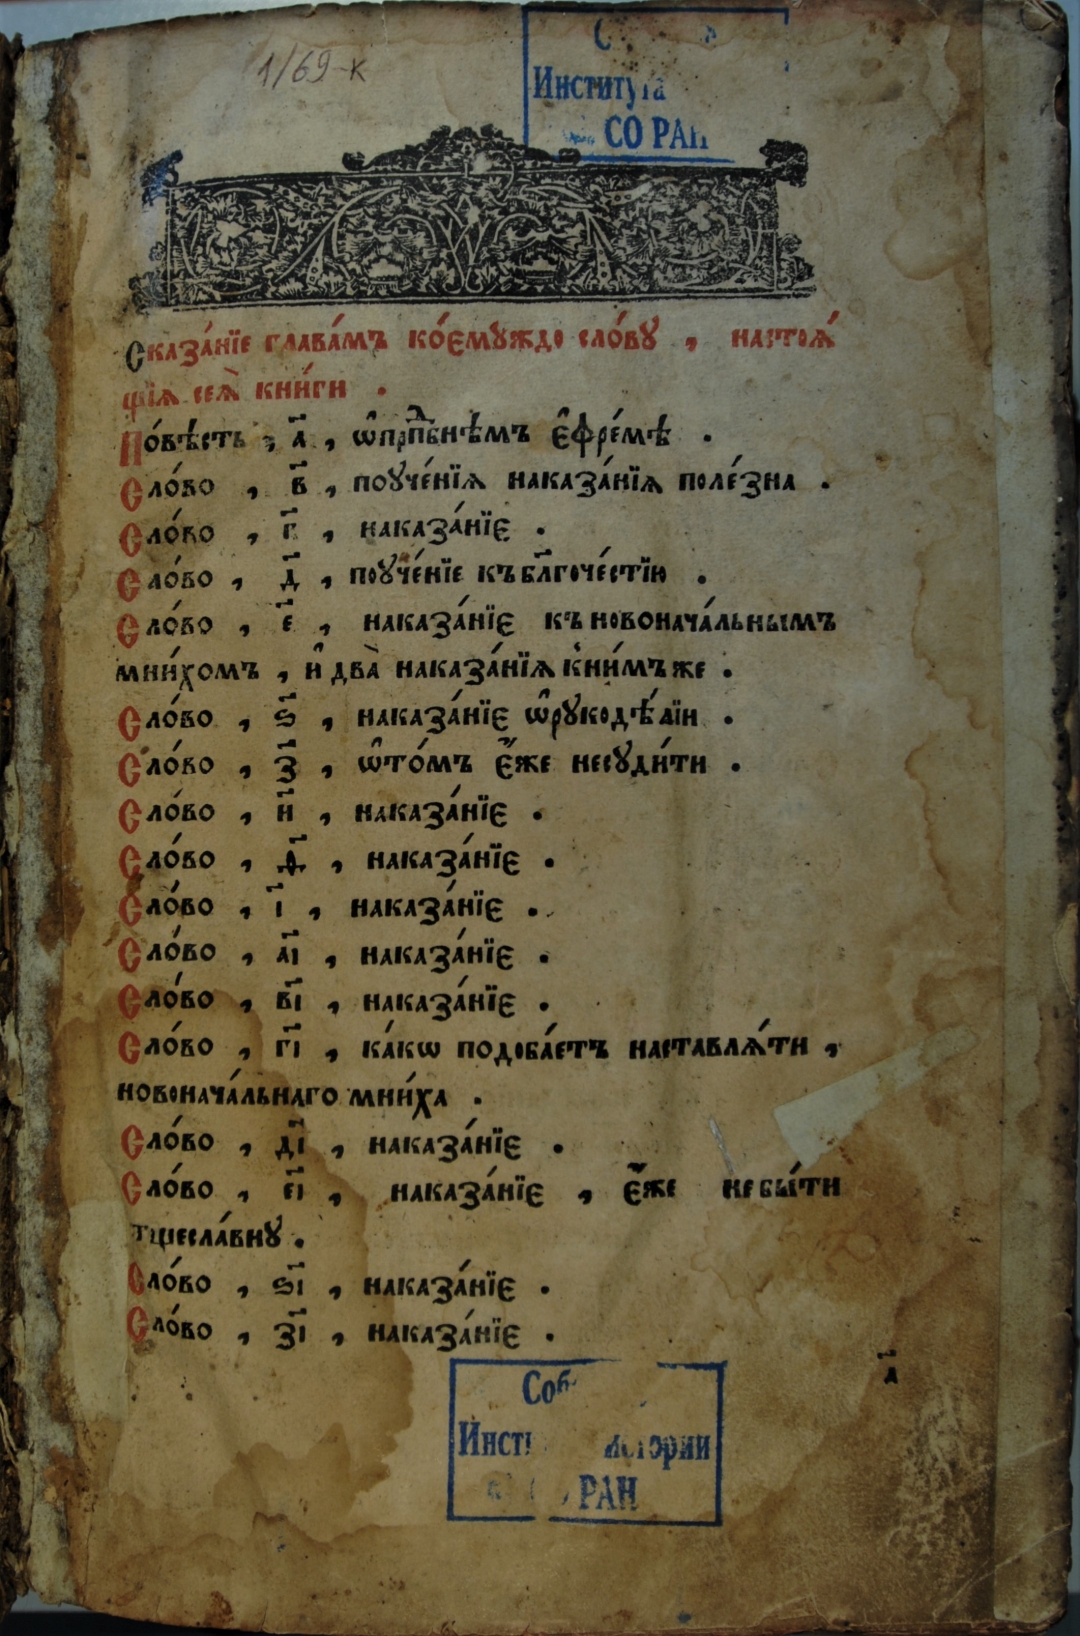 1/69-к
Института
СО РАН
Сказа́нїе глава́мъ ко́емуждо сло́ву , настоѧ́
щїѧ сеѧ̀ кни́ги .
По́вѣсть , а҃ , ѡ҆прпⷣбнѣмъ є҆фре́мѣ .
Сло́во , в҃ , поуче́нїѧ наказа́нїѧ поле́зна .
Сло́во , г҃ , наказа́нїє .
Сло́во , д҃ , поуче́нїе къбл҃гоче́стїю .
Сло́во , є҃ , наказа́нїє къновонача́льнымъ
мни́хомъ , и҆ два̀ наказа́нїѧ кни́мъже .
Сло́во , ѕ҃ , наказа́нїє ѡ҆рꙋкодѣ́лїи .
Сло́во , з҃ , ѡ҆то́мъ є҆́же несуди́ти .
Сло́во , и҃ , наказа́нїє .
Сло́во , ѳ҃ , наказа́нїє .
Сло́во , і҃ , наказа́нїє .
Сло́во , а҃і , наказа́нїє .
Сло́во , в҃і , наказа́нїє .
Сло́во , г҃і , ка́кѡ подоба́етъ наставлѧ́ти ,
новонача́льнаго мни́ха .
Сло́во , д҃і , наказа́нїє .
Сло́во , є҃і , наказа́нїє , є҆́же небы́ти
тщесла́внꙋ .
Сло́во , ѕ҃і , наказа́нїє .
Сло́во , з҃і , наказа́нїє .
а҃
истории
РАН